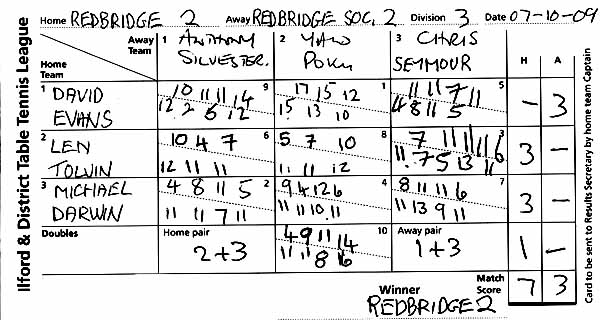 Ilford & District Table Tennis League
Home REDBRIDGE 2 Away REDBRIDGE SOC. 2 Division 3 Date 07-10-09
Away Team 1 ANTHONY SILVESTER. 2 YAW POKU 3 CHRIS SEYMOUR H A
Home Team
1 DAVID EVANS
10 11 11 14 9
12 2 6 12
17 15 12 1
15 13 10
11 11 7 11 5
4 8 11 5
- 3
2 LEN TOLVIN
10 4 7 6
12 11 11
5 7 10 8
11 11 12
7 11 11 6 3
11 7 5 13 11
3 -
3 MICHAEL DARWIN
4 8 11 5 2
11 11 7 11
9 4 12 6 4
11 11 10 11
8 11 11 6 7
11 13 9 11
3 -
Doubles
Home pair
2+3
4 9 11 14 10
11 11 8 16
Away pair
1+3
1 -
Match Score 7 3
Winner
REDBRIDGE 2
Card to be sent to Results Secretary by home team Captain